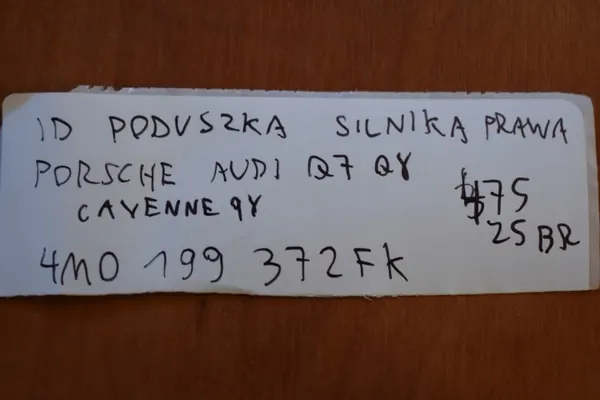 ID PODUSZKA SILNIKA PRAWA
PORSCHE AUDI Q7 Q8
CAYENNE 9Y
$75
25 BR
4M0 199 372FK